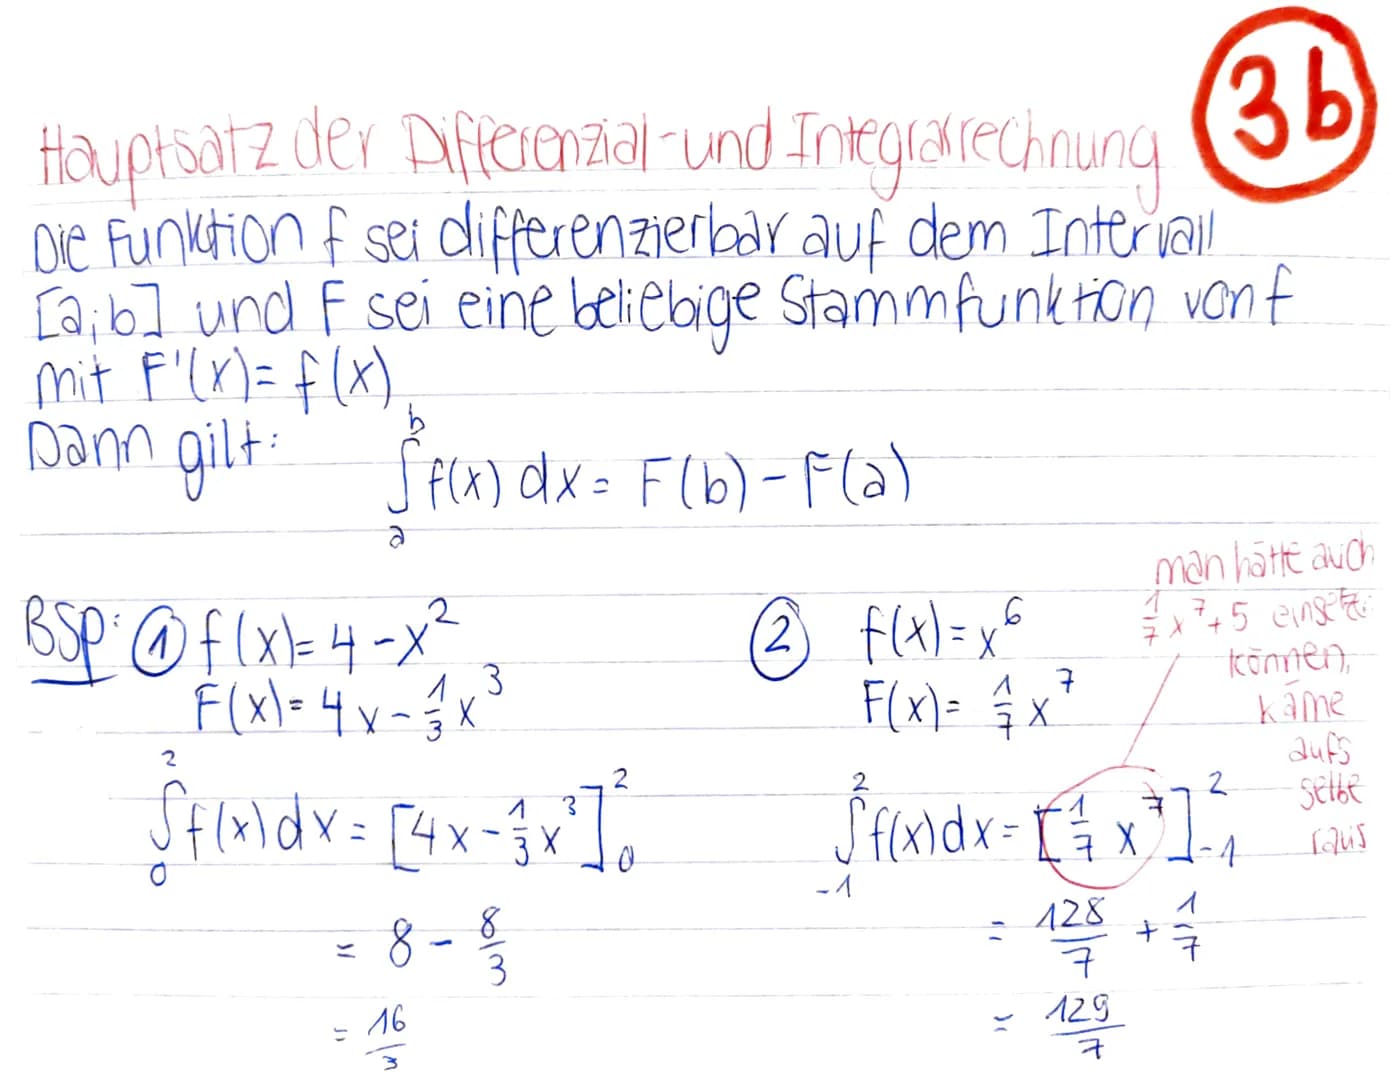 3b
Hauptsatz der Differenzial- und Integralrechnung
Die Funktion f sei differenzierbar auf dem Intervall
[a;b] und F sei eine beliebige Stammfunktion von f
mit F'(x) = f(x)
Dann gilt: ∫_a^b f(x) dx = F(b) - F(a)
BSP: ① f(x) = 4 - x²
F(x) = 4x - 1/3 x³
∫_0^2 f(x) dx = [4x - 1/3 x³]_0^2
= 8 - 8/3
= 16/3
② f(x) = x⁶
F(x) = 1/7 x⁷
∫_-1^2 f(x) dx = [1/7 x⁷]_-1^2
= 128/7 + 1/7
= 129/7
man hätte auch
1/7 x⁷ + 5 einsetz.
können,
käme
aufs
selbe
raus